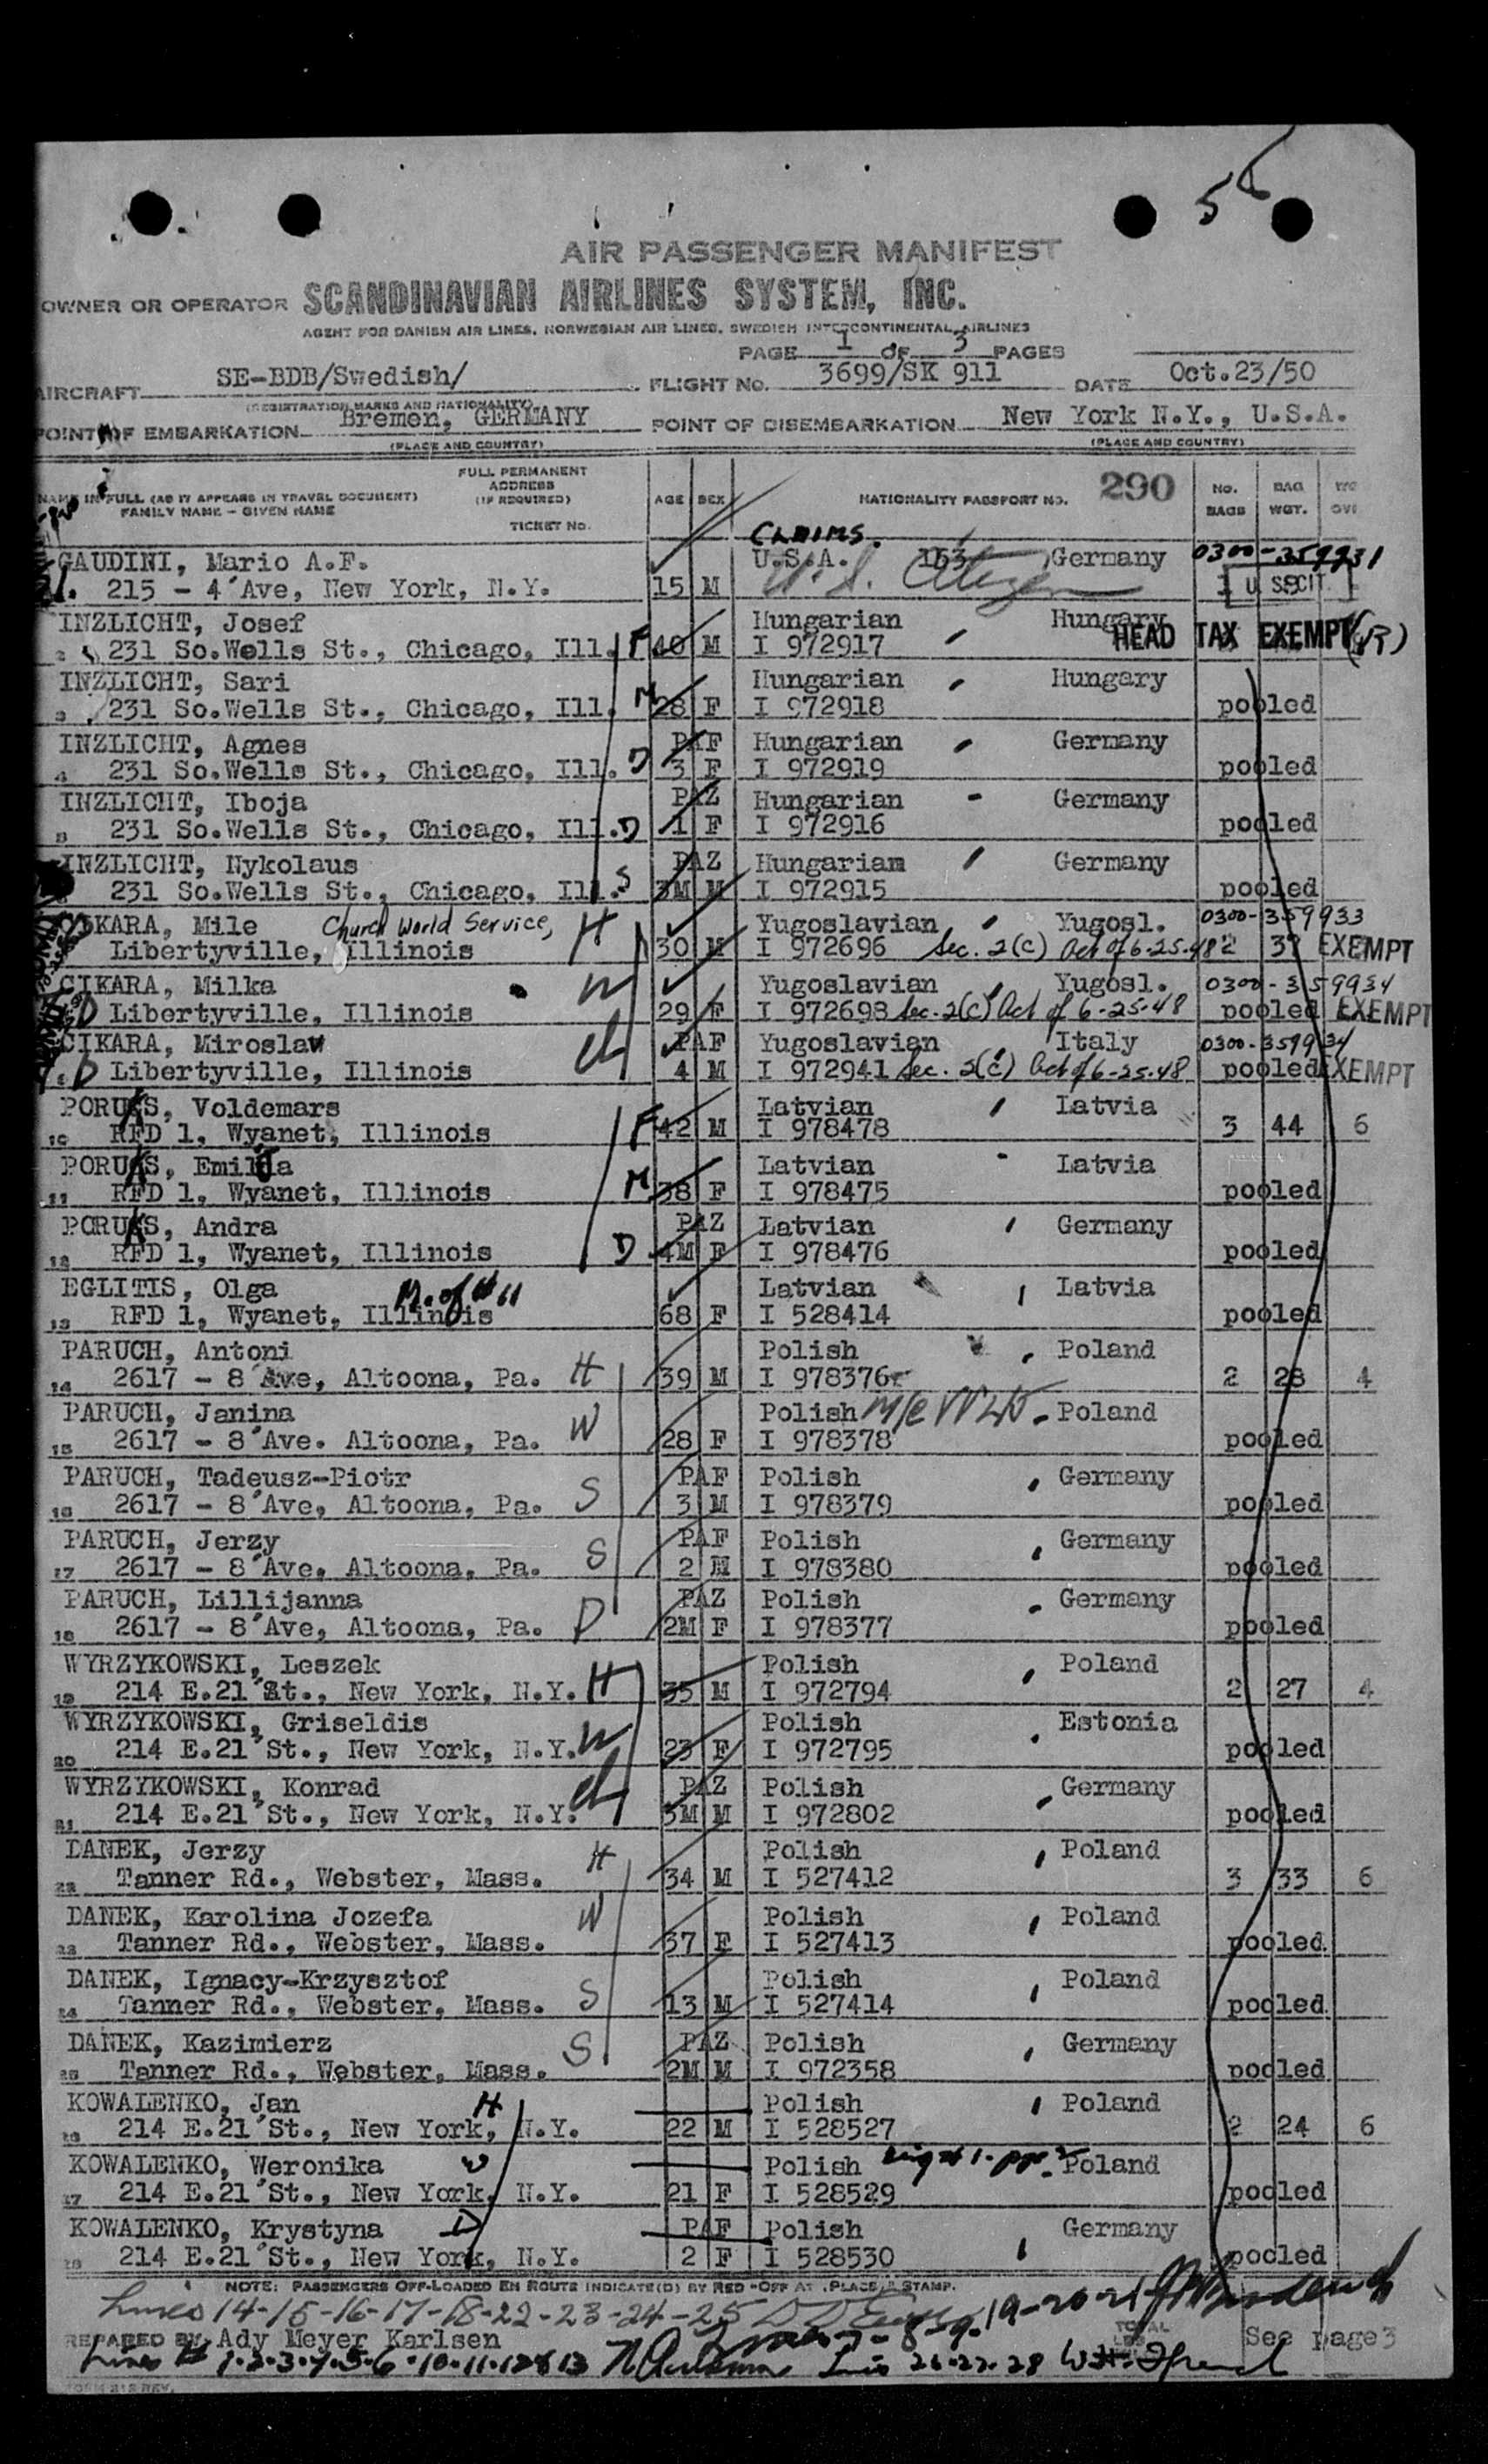 56
AIR PASSENGER MANIFEST
OWNER OR OPERATOR SCANDINAVIAN AIRLINES SYSTEM, INC.
AGENT FOR DANISH AIR LINES, NORWEGIAN AIR LINES, SWEDISH INTERCONTINENTAL AIRLINES
PAGE 1 OF 3 PAGES
AIRCRAFT SE-BDB/Swedish/ FLIGHT NO. 3699/SK 911 DATE Oct.23/50
(REGISTRATION MARKS AND NATIONALITY)
POINT OF EMBARKATION Bremen, GERMANY POINT OF DISEMBARKATION New York N.Y., U.S.A.
(PLACE AND COUNTRY) (PLACE AND COUNTRY)
NAME IN FULL (AS IT APPEARS IN TRAVEL DOCUMENT) FULL PERMANENT ADDRESS (IF REQUIRED) AGE SEX NATIONALITY PASSPORT NO. 290 NO. BAGS BAG WGT.
FAMILY NAME - GIVEN NAME TICKET NO.
CLAIMS.
GAUDINI, Mario A.F. U.S.A. 163 Germany 0300-359931
215 - 4'Ave, New York, N.Y. 15 M U.S. Citizen 1 U S CIT
INZLICHT, Josef Hungarian Hungary HEAD TAX EXEMPT
2 231 So.Wells St., Chicago, Ill. F 40 M I 972917
INZLICHT, Sari Hungarian Hungary
3 231 So.Wells St., Chicago, Ill. M 28 F I 972918 pooled
INZLICHT, Agnes PAF Hungarian Germany
4 231 So.Wells St., Chicago, Ill. D 3 F I 972919 pooled
INZLICHT, Iboja PAZ Hungarian Germany
5 231 So.Wells St., Chicago, Ill. D 1 F I 972916 pooled
INZLICHT, Nykolaus PAZ Hungarian Germany
231 So.Wells St., Chicago, Ill. S 3M M I 972915 pooled
CIKARA, Mile Church World Service, H Yugoslavian Yugosl. 0300-359933
Libertyville, Illinois 30 M I 972696 Sec. 2(c) Act of 6-25-48 2 37 EXEMPT
CIKARA, Milka W Yugoslavian Yugosl. 0300-359934
D Libertyville, Illinois 29 F I 972698 Sec. 2(c) Act of 6-25-48 pooled EXEMPT
CIKARA, Miroslaw ch PAF Yugoslavian Italy 0300-359934
D Libertyville, Illinois 4 M I 972941 Sec. 2(c) Act of 6-25-48 pooled EXEMPT
PORUKS, Voldemars Latvian Latvia
10 RFD 1, Wyanet, Illinois F 42 M I 978478 3 44 6
PORUKS, Emilija Latvian Latvia
11 RFD 1, Wyanet, Illinois M 38 F I 978475 pooled
PORUKS, Andra PAZ Latvian Germany
12 RFD 1, Wyanet, Illinois D 4M F I 978476 pooled
EGLITIS, Olga M. of #11 Latvian Latvia
13 RFD 1, Wyanet, Illinois 68 F I 528414 pooled
PARUCH, Antoni Polish Poland
14 2617 - 8'Ave, Altoona, Pa. H 39 M I 978376 2 28 4
PARUCH, Janina Polish Poland
15 2617 - 8'Ave. Altoona, Pa. W 28 F I 978378 pooled
PARUCH, Tadeusz-Piotr PAF Polish Germany
16 2617 - 8'Ave, Altoona, Pa. S 3 M I 978379 pooled
PARUCH, Jerzy PAF Polish Germany
17 2617 - 8'Ave, Altoona, Pa. S 2 M I 978380 pooled
PARUCH, Lillijanna PAZ Polish Germany
18 2617 - 8'Ave, Altoona, Pa. D 2M F I 978377 pooled
WYRZYKOWSKI, Leszek Polish Poland
19 214 E.21'St., New York, N.Y. H 35 M I 972794 2 27 4
WYRZYKOWSKI, Griseldis Polish Estonia
20 214 E.21'St., New York, N.Y. W 23 F I 972795 pooled
WYRZYKOWSKI, Konrad PAZ Polish Germany
21 214 E.21'St., New York, N.Y. ch 3M M I 972802 pooled
DANEK, Jerzy Polish Poland
22 Tanner Rd., Webster, Mass. H 34 M I 527412 3 33 6
DANEK, Karolina Jozefa Polish Poland
23 Tanner Rd., Webster, Mass. W 37 F I 527413 pooled
DANEK, Ignacy-Krzysztof Polish Poland
24 Tanner Rd., Webster, Mass. S 13 M I 527414 pooled
DANEK, Kazimierz PAZ Polish Germany
25 Tanner Rd., Webster, Mass. S 2M M I 972358 pooled
KOWALENKO, Jan H Polish Poland
26 214 E.21'St., New York, N.Y. 22 M I 528527 2 24 6
KOWALENKO, Weronika W Polish Poland
27 214 E.21'St., New York, N.Y. 21 F I 528529 pooled
KOWALENKO, Krystyna D PAF Polish Germany
28 214 E.21'St., New York, N.Y. 2 F I 528530 pooled
NOTE: PASSENGERS OFF-LOADED EN ROUTE INDICATE(D) BY RED "OFF AT (PLACE)" STAMP.
Lines 14-15-16-17-18-22-23-24-25 19-20-21
PREPARED BY Ady Meyer Karlsen 7-8-9 TOTAL LBS See page3
Lines # 1-2-3-4-5-6-10-11-12&13 Lines 26-27-28